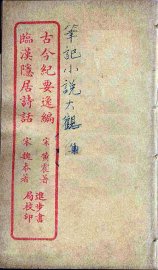 筆記小說大觀
古今紀要逸編 宋 黃震著
臨漢隱居詩話 宋 魏泰著
進步書
局校印